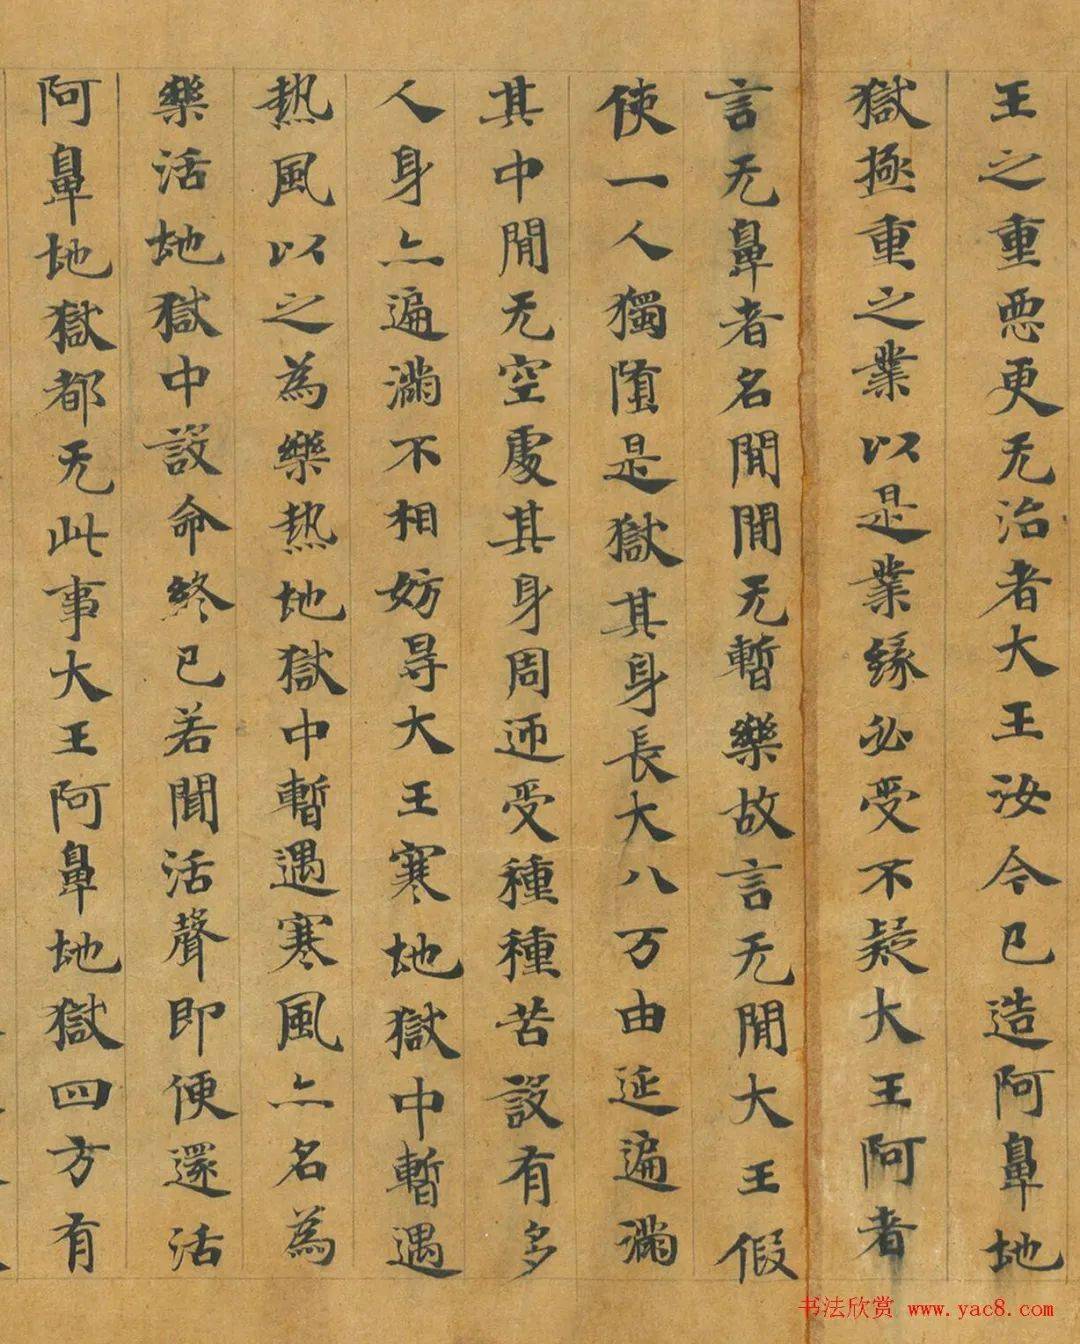 王之重悪更无治者大王汝今已造阿鼻地
獄極重之業以是業緣必受不疑大王阿者
言无鼻者名閒閒无暫樂故言无閒大王假
使一人獨墮是獄其身長大八万由延遍滿
其中閒无空處其身周迊受種種苦設有多
人身亦遍滿不相妨㝵大王寒地獄中暫遇
熱風以之為樂熱地獄中暫遇寒風亦名為
樂活地獄中設命終已若聞活聲即便還活
阿鼻地獄都无此事大王阿鼻地獄四方有
书法欣赏 www.yac8.com